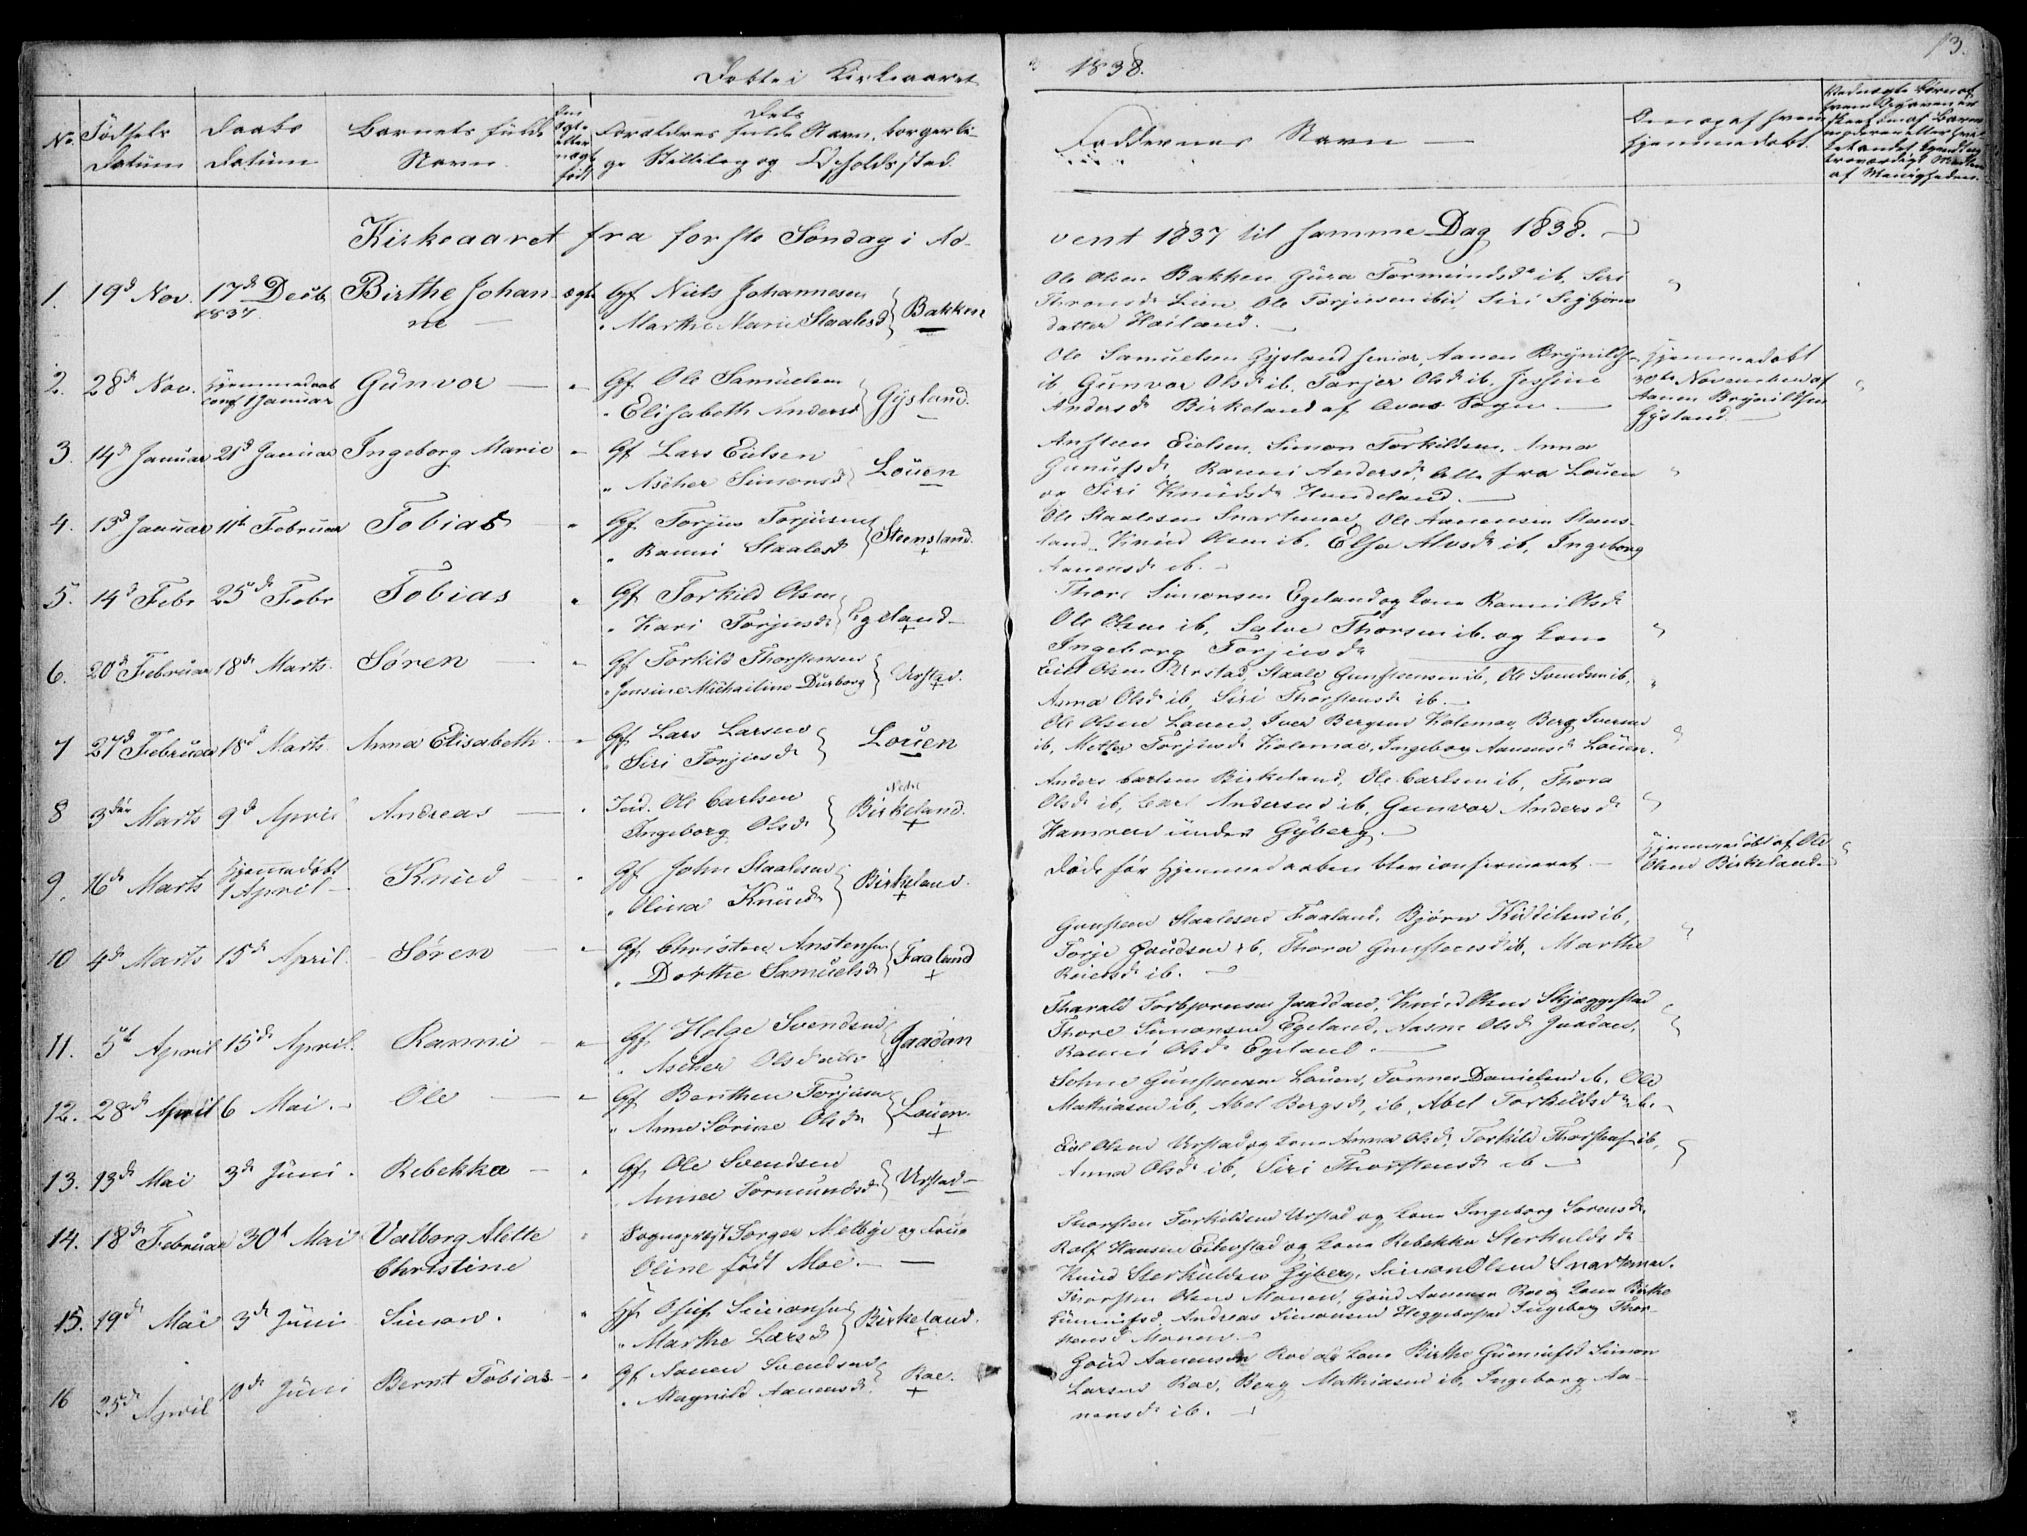 Døbte i Kirkeaaret 1838.
13.
No. Fødsels Datum
Daabs Datum
Barnets fulde Navn.
Om ægte eller uægte født
Dets Forældres fulde Navn, borgerlige Stilling og Opholdssted
Faddernes Navn —
Om og af hvem hjemmedøbt.
Kirkeaaret fra første Søndag i Advent 1837 til samme Dag 1838. —
1. 19d Nov. 17d Decb 1837 Birthe Johanne — ægt. Gf Niels Johannesen
" Marthe Marie Staalesd } Bakken
Ole Olsen Bakken, Gura Tormundsdr ib, Siri
Thronsdr Lien, Ole Torjusen ibid, Siri Sigbjørns
datter Hailand. —
2. 28d Nov. Hjemmedøbt conf 1 Januar Gunvor — " Gf. Ole Samuelsen
" Elisabeth Andersd } Gysland.
Ole Samuelsen Gysland senior, Aanen Brynilds
ib, Gunvor Olsd ib, Tarjer Olsd ib, Jessine
Andersdr Birkeland af Sogn —
Hjemmedøbt
30te November af
Aanen Brynildsen
Gysland. —
3. 14d Januar 21d Januar Ingeborg Marie " Gf. Lars Eielsen
" Ascher Simonsd } Louen
Ansteen Eielsen, Simon Torkildsen, Anna
Gunufsdr, Ranni Andersdr, Alle fra Louen
og Siri Knudsdr Hundeland. —
4. 13d Januar 11te Februar Tobias " Gf. Torjus Torjusen
" Ranni Staalesd } Steensland.
Ole Staalesen Snartemoe, Ole Aanensen Stens-
land, Knud Olsen ib, Elsa Alvsdr ib, Ingeborg
Aanensdr ib. —
5. 14d Febr 25de Febr Tobias " Gf Torkild Olsen
" Kari Torjusdr } Egeland
Thore Simonsen Egeland og Kone Ranni Olsdr
Ole Olsen ib, Salve Thorsen ib. og Kone
Ingeborg Torjusdr
6. 20d Februar 18de Marts. Søren — " Gf Torkild Thorstensen
" Jensine Michailine Durborg } Urstad.
Eiel Olsen Urstad, Staale Gunsteensen ib, Ole Svendsen ib,
Anna Olsd ib, Siri Thorstensdr ib. —
7 27d Februar 18d Marts Anna Elisabeth " Gf Lars Larsen
" Siri Torjusdr } Louen
Ole Olsen Louen, Iver Bergsen Kolemoe, Berg Iversen
ib, Mette Torjusdr Kolemoe, Ingeborg Aanensd Louen.
8 3die Marts 9d April Andreas — " Ind. Ole Carlsen
Ingeborg Olsdr } Nedre Birkeland.
Anders Carlsen Birkeland, Ole Carlsen ib, Thora
Olsdr ib, Carl Andersen ib, Gunvor Andersdr
Hamren under Gyberg. —
9. 16de Marts Hjemmedøbt 1 April — Knud — " Gf John Staalesen
" Olina Knudsd } Birkeland.
Døde før Hjemmedaaben blev confirmeret. —
Hjemmedøbt af Ole
Olsen Birkeland. —
10 4d Marts 15d April. Søren — " Gf. Christen Anstensen
" Dorthe Samuelsdr } Faaland
Gunsteen Staalesen Faaland, Bjørn Kiddelsen ib,
Torje Goudsen ib, Thora Gunsteensd ib, Marthe
Reiersdr ib. —
11. 5te April 15de April. Ranni — " Gf. Helge Svendsen
" Ascher Olsdatter } Jaadan
Tharald Torbjørnsen Jaadan, Knud Olsen Skjæggestad
Thore Simonsen Egeland, Aasne Olsdr Jaadan,
Ranni Olsdr Egeland. —
12. 28d April 6 Mai. — Ole — " Gf Benthen Torjusen
" Anne Sørine Olsdr } Louen.
Sohne Gunstensen Louen, Tønnes Danielsen ib, Ole
Mathiasen ib, Abel Bergsdr ib, Abel Torkildsdr ib. —
13. 13de Mai 3d Juni. Rebekka — " Gf. Ole Svendsen
Anna Tormundsd } Urstad —
Eiel Olsen Urstad og Kone Anna Olsdr, Torkild Thorstens ib,
Anna Olsdr ib, Siri Thorstensdr ib —
14. 18de Februar 30t Mai Valborg Alette Christine " Sogneprest Sørger Melbye og Frue
Oline født Moe. —
Thorsten Torkildsen Urstad og Kone Ingeborg Sørensdr
Rolf Hansen Eikestad og Kone Rebekka Sterkuldsdr
Knud Sterkuldsen Gyberg, Simon Olsen Snartemoe.
15. 19de Mai 3de Juni Simon. " Gf. Osuf Simonsen
" Marthe Larsd } Birkeland.
Thorsten Olsen Monen, Goud Aanensen Roe og Kone Birthe
Gunnufsd, Andreas Simonsen Heggebostad, Ingeborg Thor-
stensd Monen. —
16 25de April 10de Juni Bernt Tobias — " Gf Aanen Svendsen
" Magnild Aanensdr } Roe.
Goud Aanensen Roe og Kone Birthe Gunnufsd, Simon
Larsen Roe, Berg Mathiasen ib, Ingeborg Aa-
nensdr ib. —